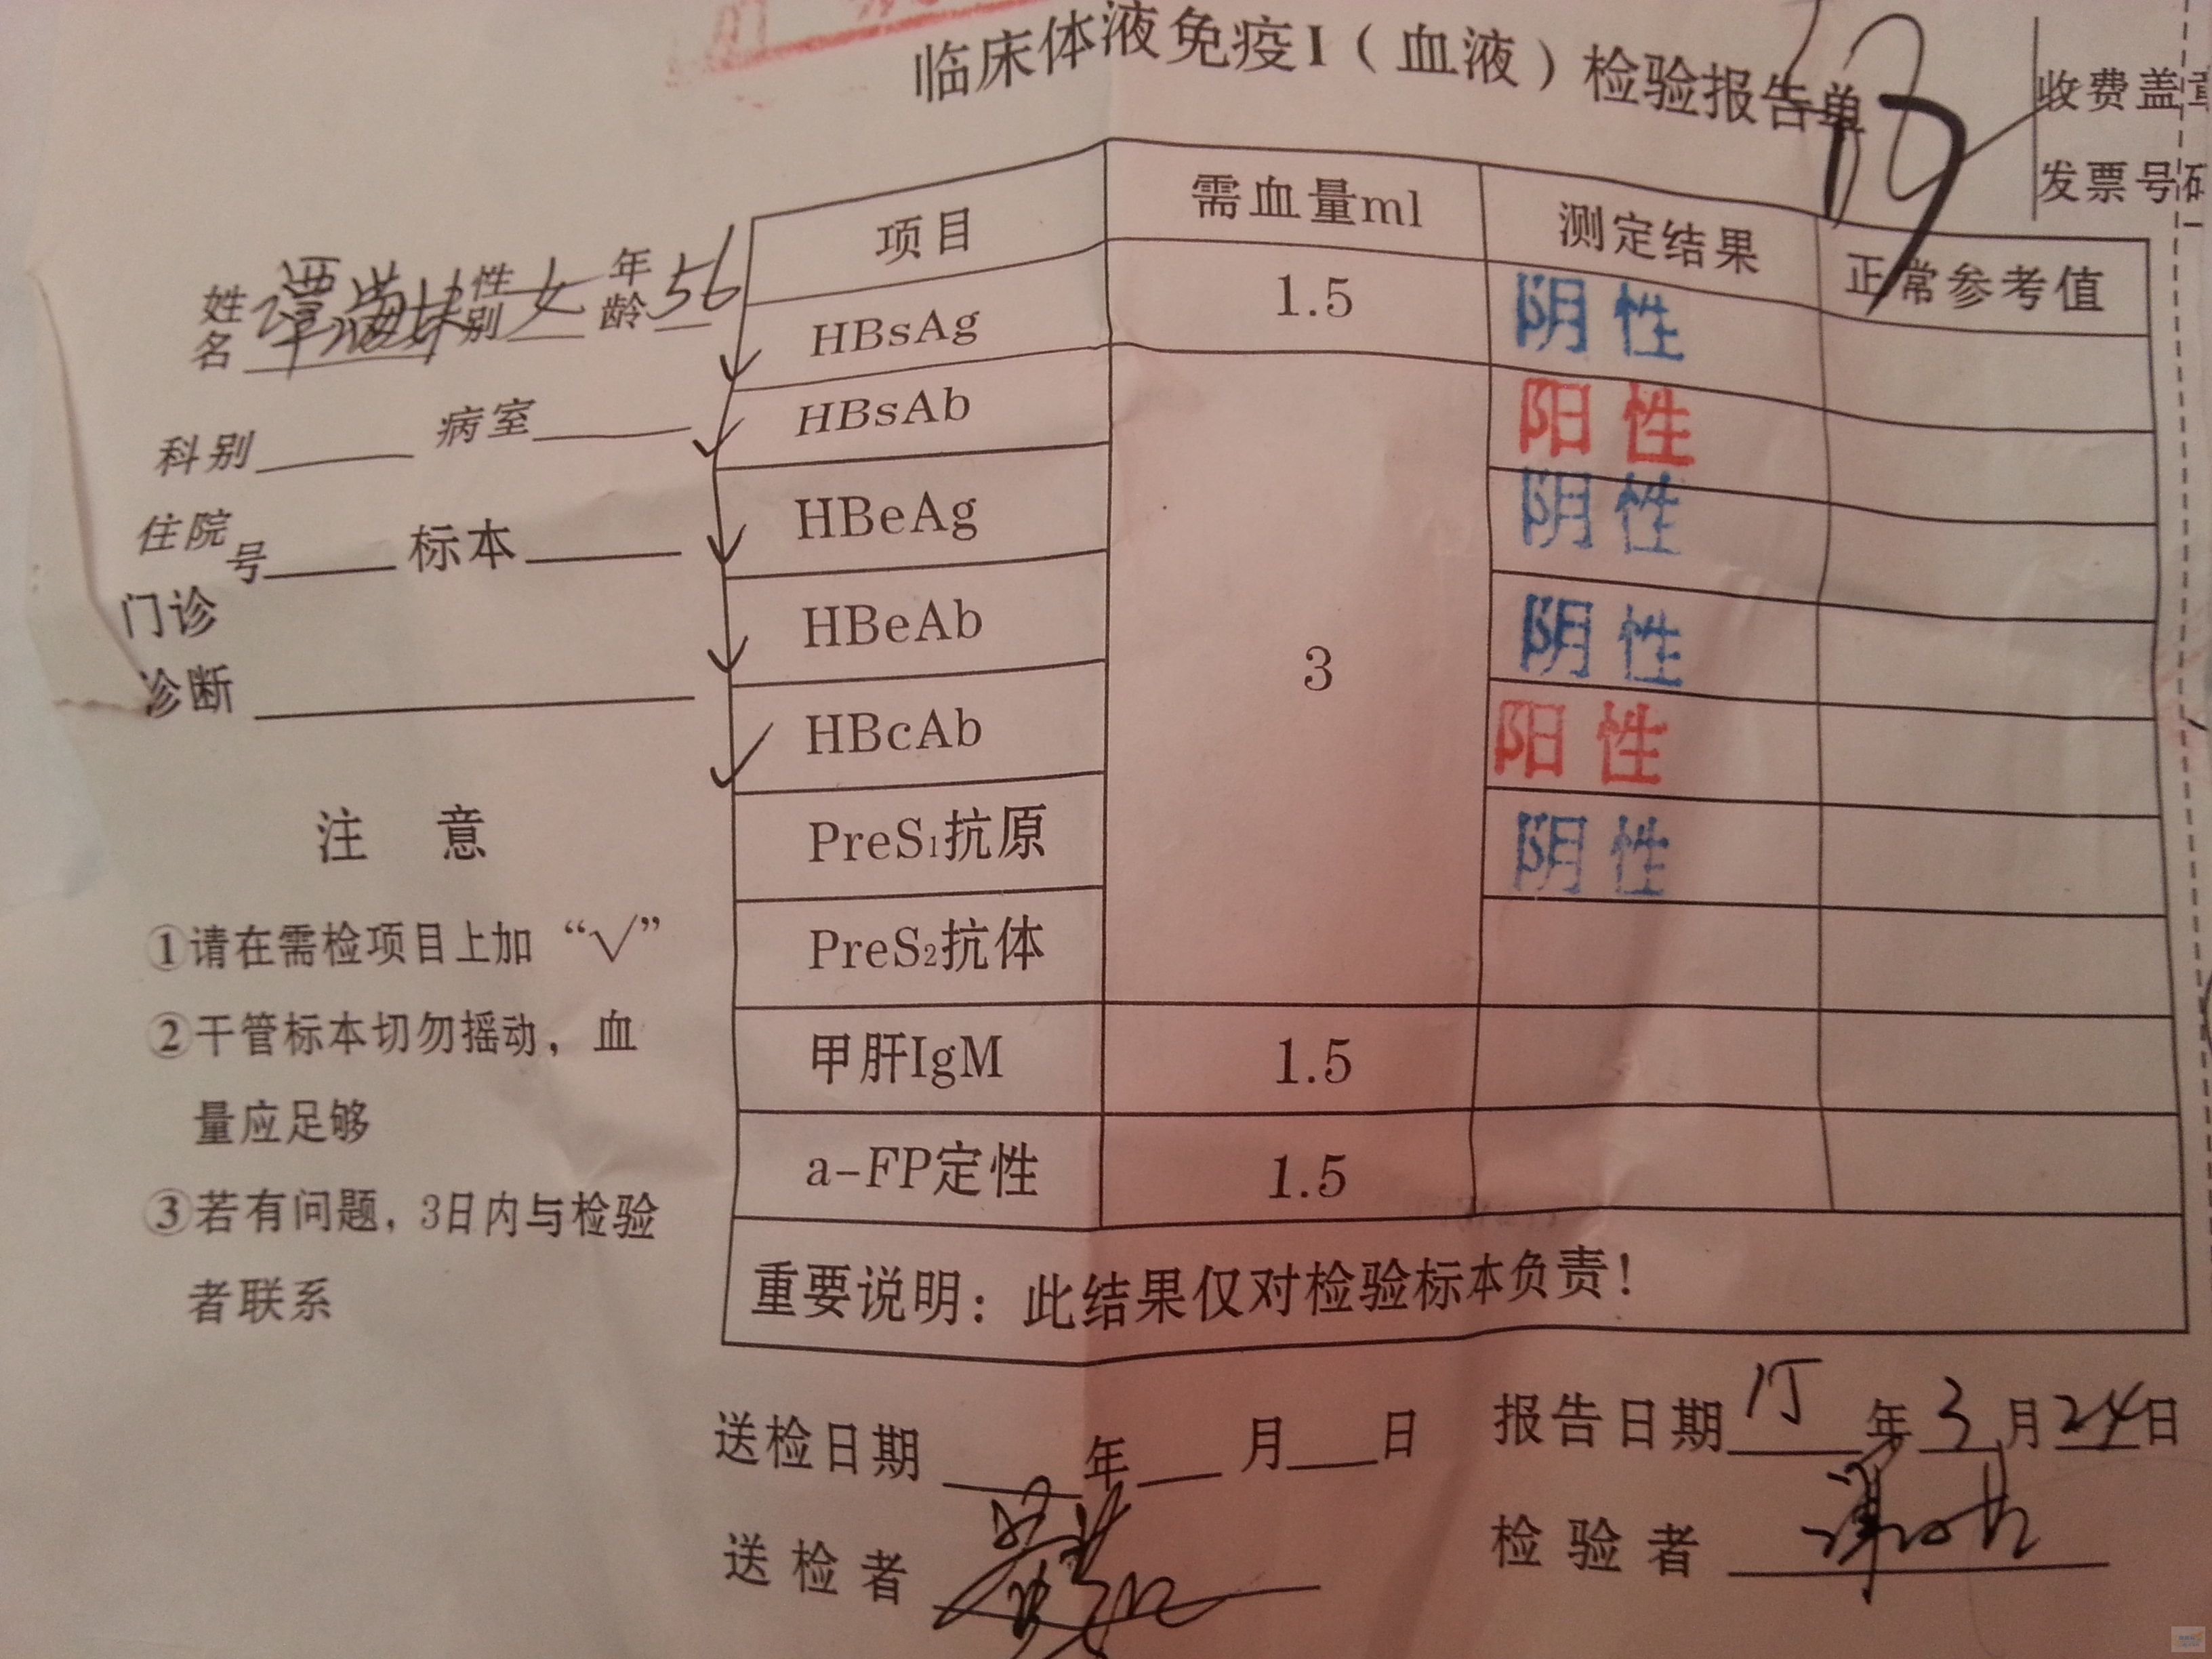 临床体液免疫I（血液）检验报告单
收费盖章
发票号码
姓名 谭满妹 性别 女 年龄 56
科别 病室
住院号 标本
门诊
诊断
注 意
①请在需检项目上加“√”
②干管标本切勿摇动，血
量应足够
③若有问题，3日内与检验
者联系
项目 需血量ml 测定结果 正常参考值
√ HBsAg 1.5 阴性
√ HBsAb 3 阳性
√ HBeAg 阴性
√ HBeAb 阴性
√ HBcAb 阳性
PreS₁抗原 阴性
PreS₂抗体
甲肝IgM 1.5
a-FP定性 1.5
重要说明：此结果仅对检验标本负责！
送检日期 年 月 日 报告日期 15 年 3 月 24 日
送检者 检验者